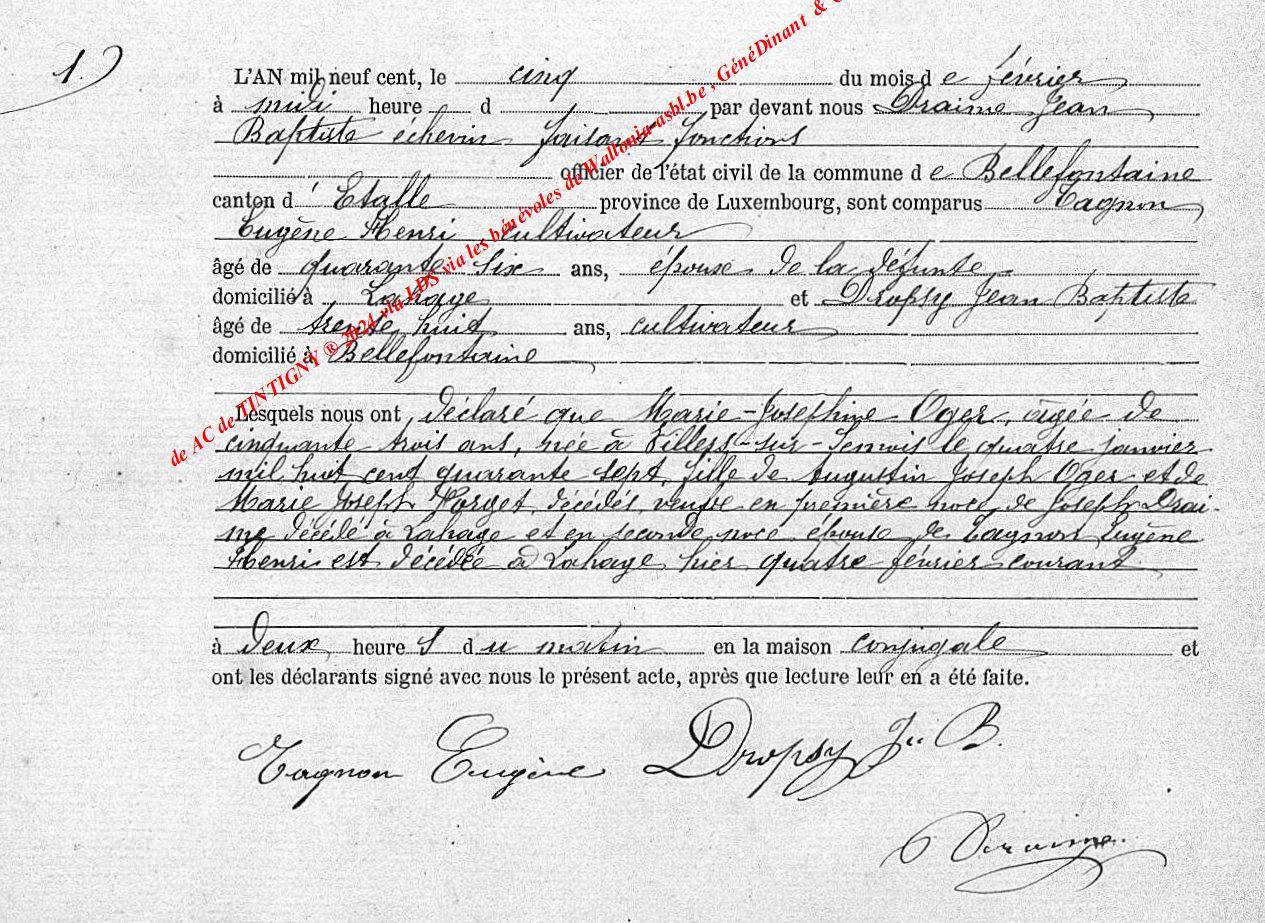 1.
L'AN mil neuf cent, le cinq du mois d e février
à midi heure d par devant nous Draime Jean
Baptiste échevin faisant fonctions
officier de l'état civil de la commune d e Bellefontaine
canton d' Etalle province de Luxembourg, sont comparus Tagnon
Eugène Henri cultivateur
âgé de quarante six ans, épouse de la défunte
domicilié à Lahage et Dropsy Jean Baptiste
âgé de trente huit ans, cultivateur
domicilié à Bellefontaine
Lesquels nous ont déclaré que Marie-Joséphine Oger, âgée de
cinquante trois ans, née à Villers-sur-Semois le quatre janvier
mil huit cent quarante sept, fille de Augustin Joseph Oger et de
Marie Joseph Forget, décédés, veuve en première noce de Joseph Drai-
me décédé à Lahage et en seconde noce épouse de Tagnon Eugène
Henri est décédée à Lahage hier quatre février courant
à deux heure s d u matin en la maison conjugale et
ont les déclarants signé avec nous le présent acte, après que lecture leur en a été faite.
Tagnon Eugène Dropsy Jn B.
Draime
de AC de TINTIGNY ® 2024 via LDS via les bénévoles de Wallonia-asbl.be , GénéDinant &